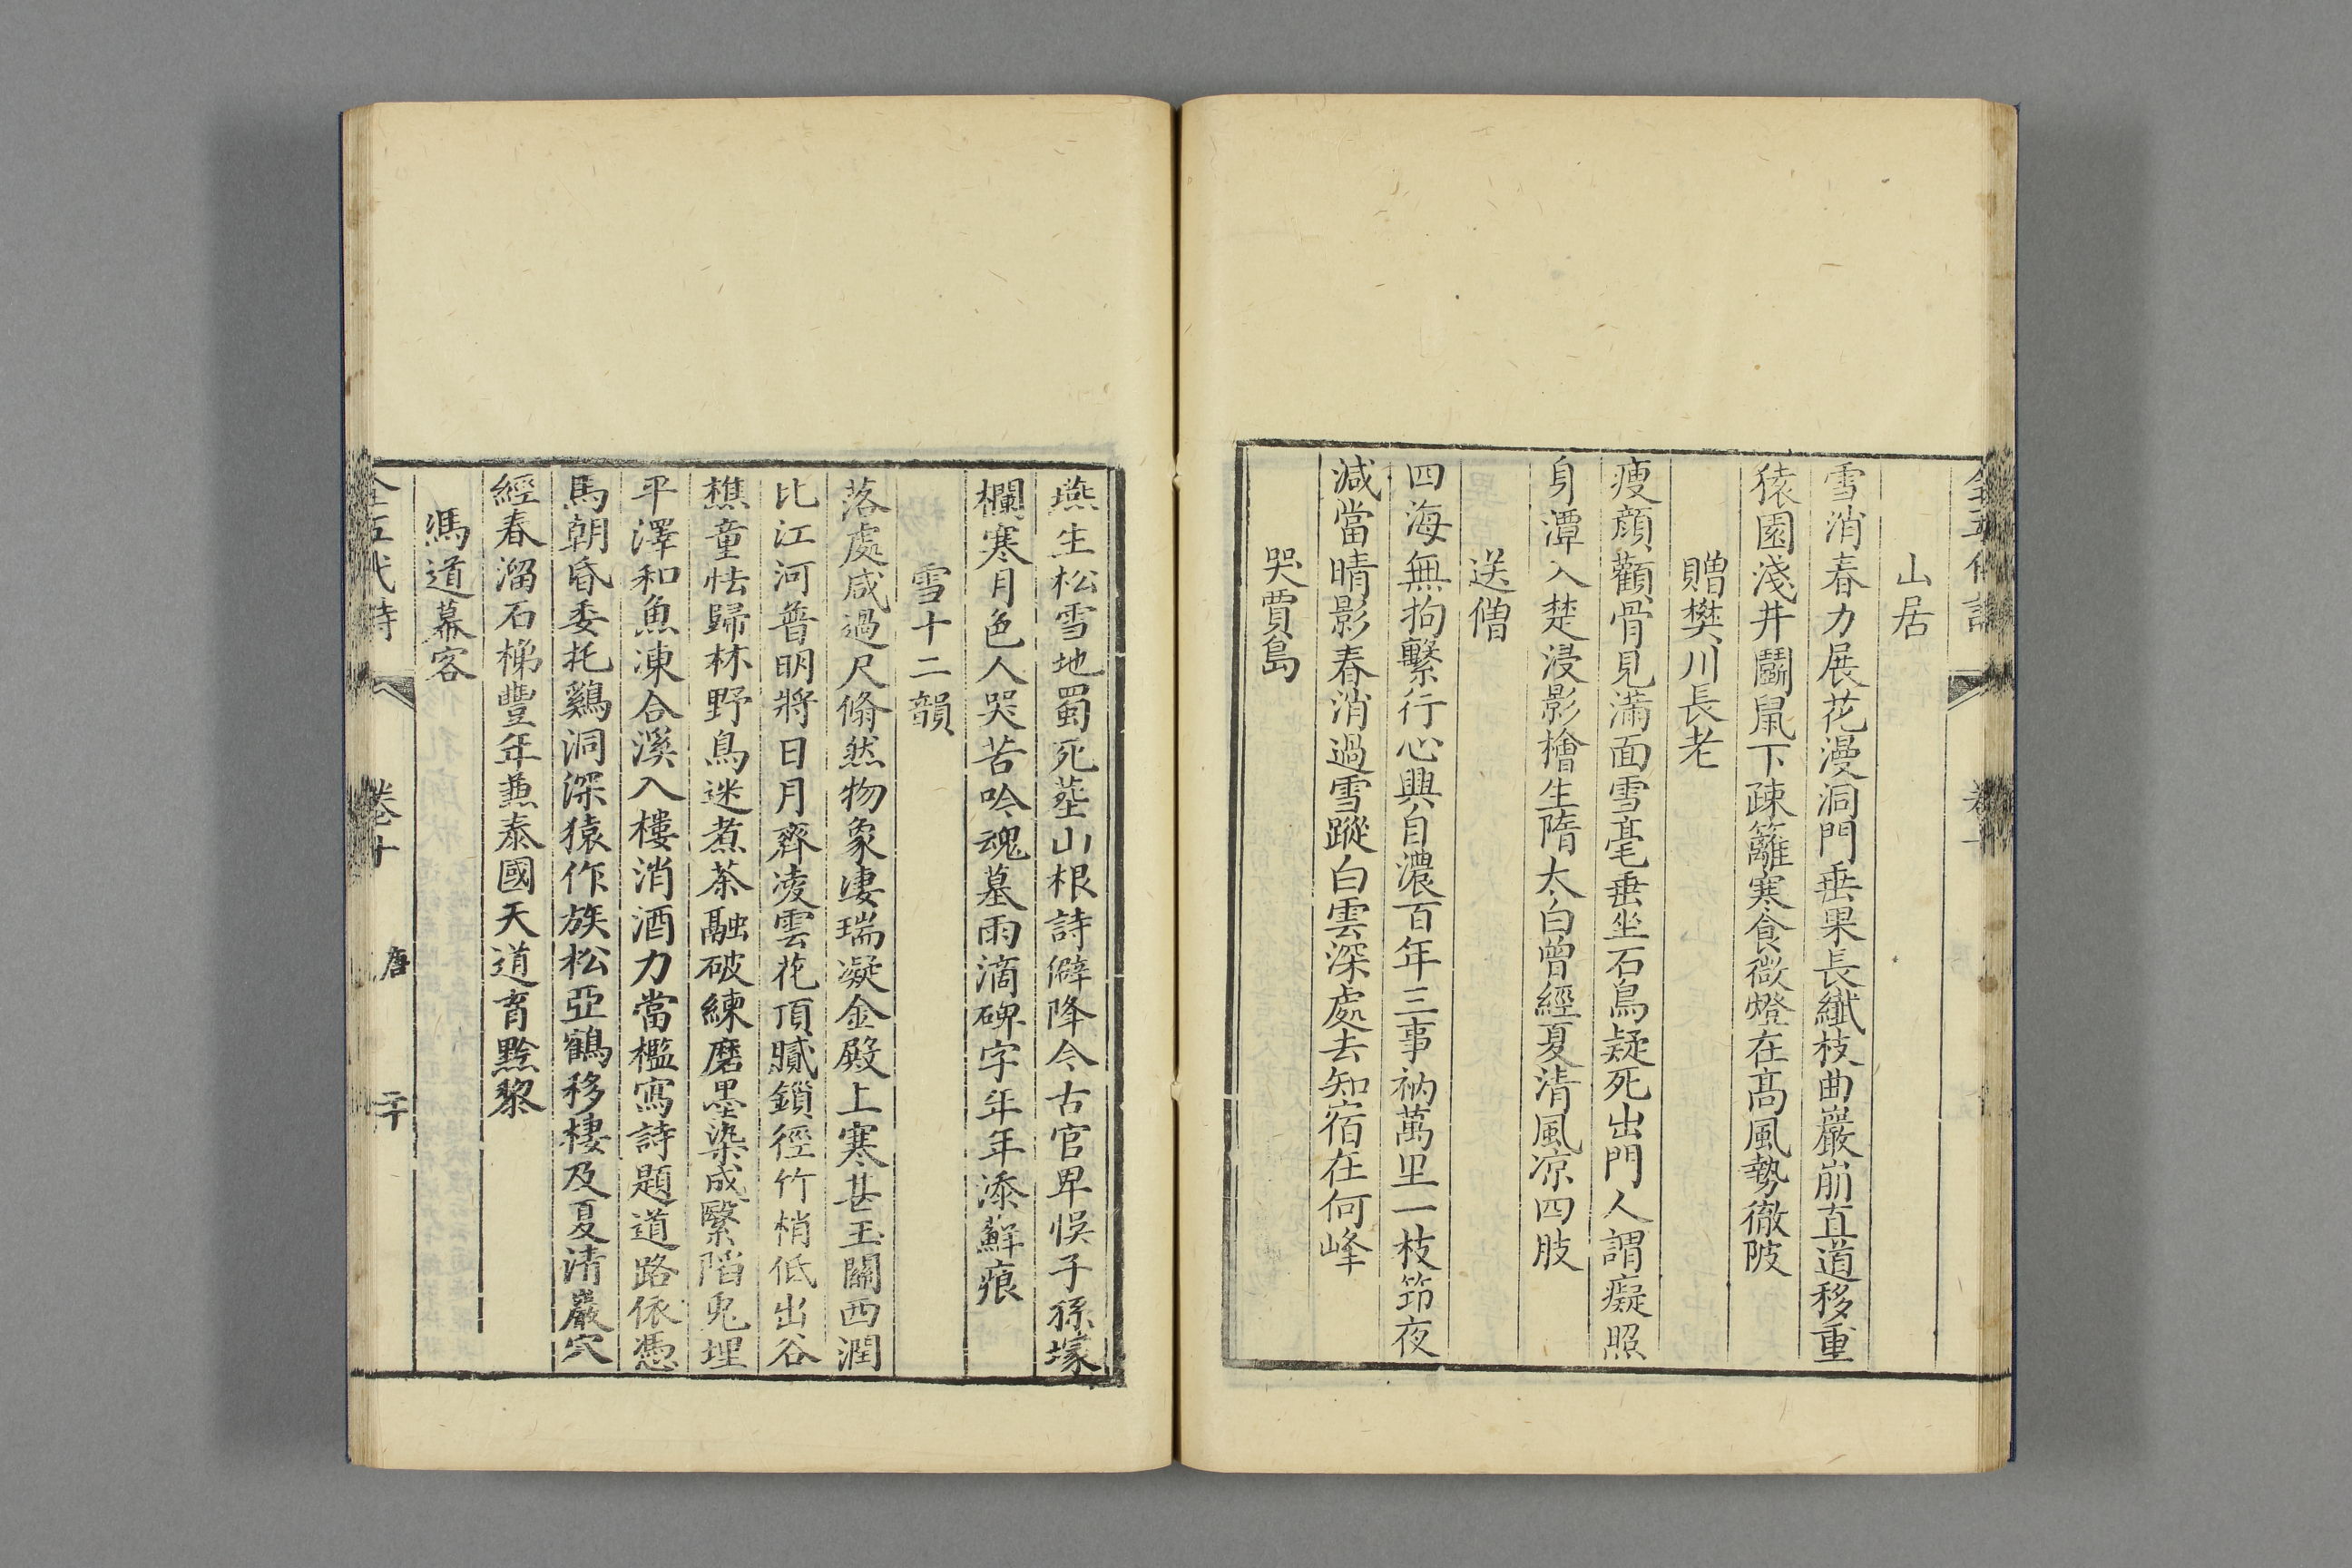 全五代詩
山居
雪消春力展花漫洞門垂果長纖枝曲巖崩直道移重
猿園淺井鬬鼠下疎籬寒食微燈在高風勢徹陂
贈樊川長老
瘦顔顴骨見滿面雪毫垂坐石鳥疑死出門人謂癡照
身潭入楚浸影檜生隋太白曾經夏清風凉四肢
送僧
四海無拘繫行心興自濃百年三事衲萬里一枝笻夜
減當晴影春消過雪蹤白雲深處去知宿在何峰
哭賈島
燕生松雪地蜀死葬山根詩僻降今古官卑悞子孫塚
欄寒月色人哭苦吟魂墓雨滴碑字年年添蘚痕
雪十二韻
落處咸過尺翛然物象凄瑞凝金殿上寒甚玉關西潤
比江河普明將日月齊凌雲花頂膩鎖徑竹梢低出谷
樵童怯歸林野鳥迷煮茶融破練磨墨染成緊陷兎埋
平澤和魚凍合溪入樓消酒力當檻寫詩題道路依憑
馬朝昏委托鷄洞深猿作族松亞鶴移棲及夏清巖穴
經春溜石梯豐年兼泰國天道育黔黎
馮道幕客
全五代詩 卷十 唐 二十